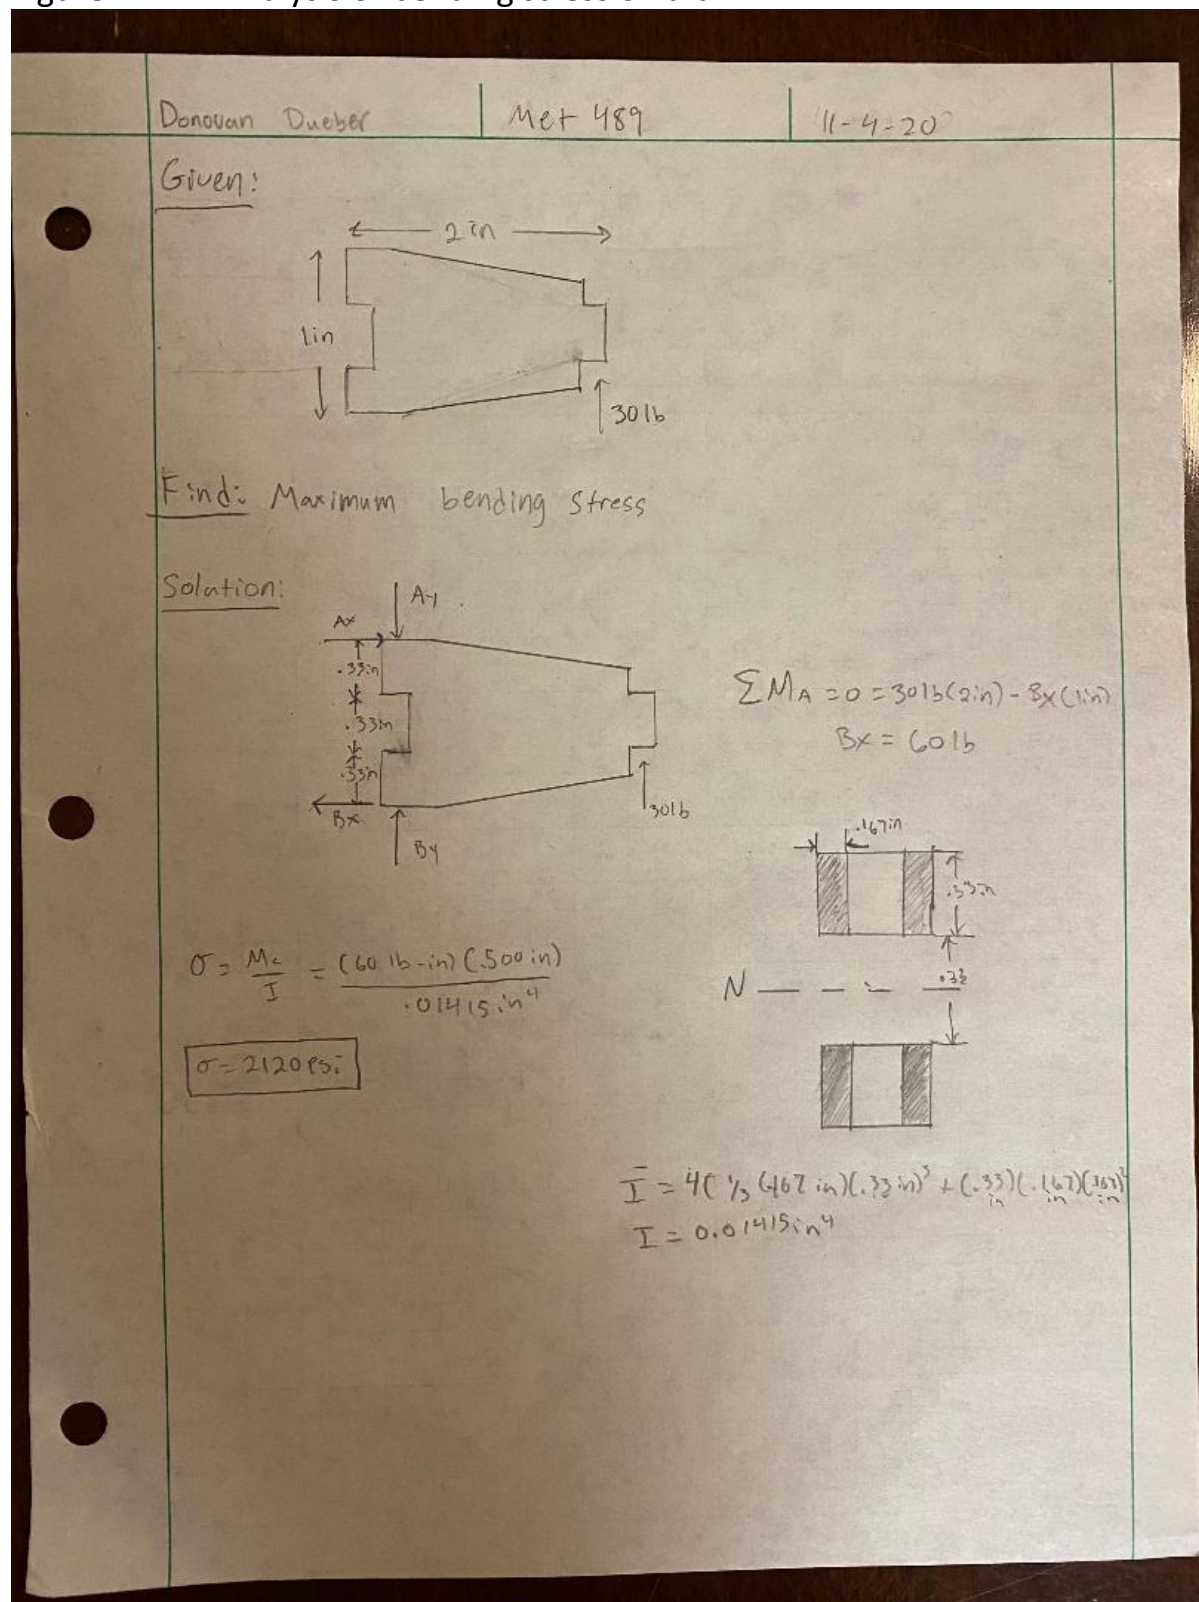 Donovan Dueber Met 489 11-4-20
Given:
2 in
1in
30 lb
Find: Maximum bending stress
Solution:
Ay
Ax
.33in
.33in
.33in
Bx
By
30lb
ΣMA = 0 = 30lb(2in) - Bx(1in)
Bx = 60 lb
.167in
.33in
N
.33
σ = Mc/I = (60 lb-in)(.500 in)/.01415 in⁴
σ = 2120 psi
I = 4(1/3(.167 in)(.33 in)³ + (.33 in)(.167 in)(.167 in)²
I = 0.01415in⁴